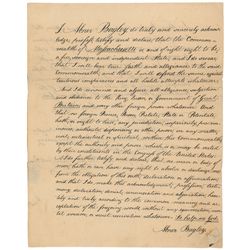 I Abner Bagley, do truly and sincerely acknow-
ledge, profess, testify and declare, that the Common-
wealth of Massachusetts is, and of right ought to be,
a free, sovereign and independent State; and I do swear
that I will bear true faith and allegiance to the said
Commonwealth, and that I will defend the same against
traitorous conspiracies and all hostile attempts whatsoever.
And that I do renounce and abjure all allegiance, subjection
and obedience to the King, government of Great
Britain and any other foreign power whatsoever. And
that no foreign Prince, Person, Prelate, State or Potentate,
hath, or ought to have, any jurisdiction, superiority, pre-
eminence, authority, dispensing or other power, in any matter,
civil, ecclesiastical or spiritual, within this Commonwealth;
except the authority and power which is or may be vested
by their constituents in the Congress of the United States.
And I do further testify and declare, that no man or body of
men, hath or can have any right to absolve or discharge me
from the obligation of this oath, declaration or affirmation;
and that I do make this acknowledgment, profession, testi-
mony, declaration, denial, renunciation and abjuration, heartily
and truly, according to the common meaning and ac-
ceptation of the foregoing words, without any equivocation, men-
tal evasion, or secret reservation whatsoever. So help me God.
Abner Bagley.